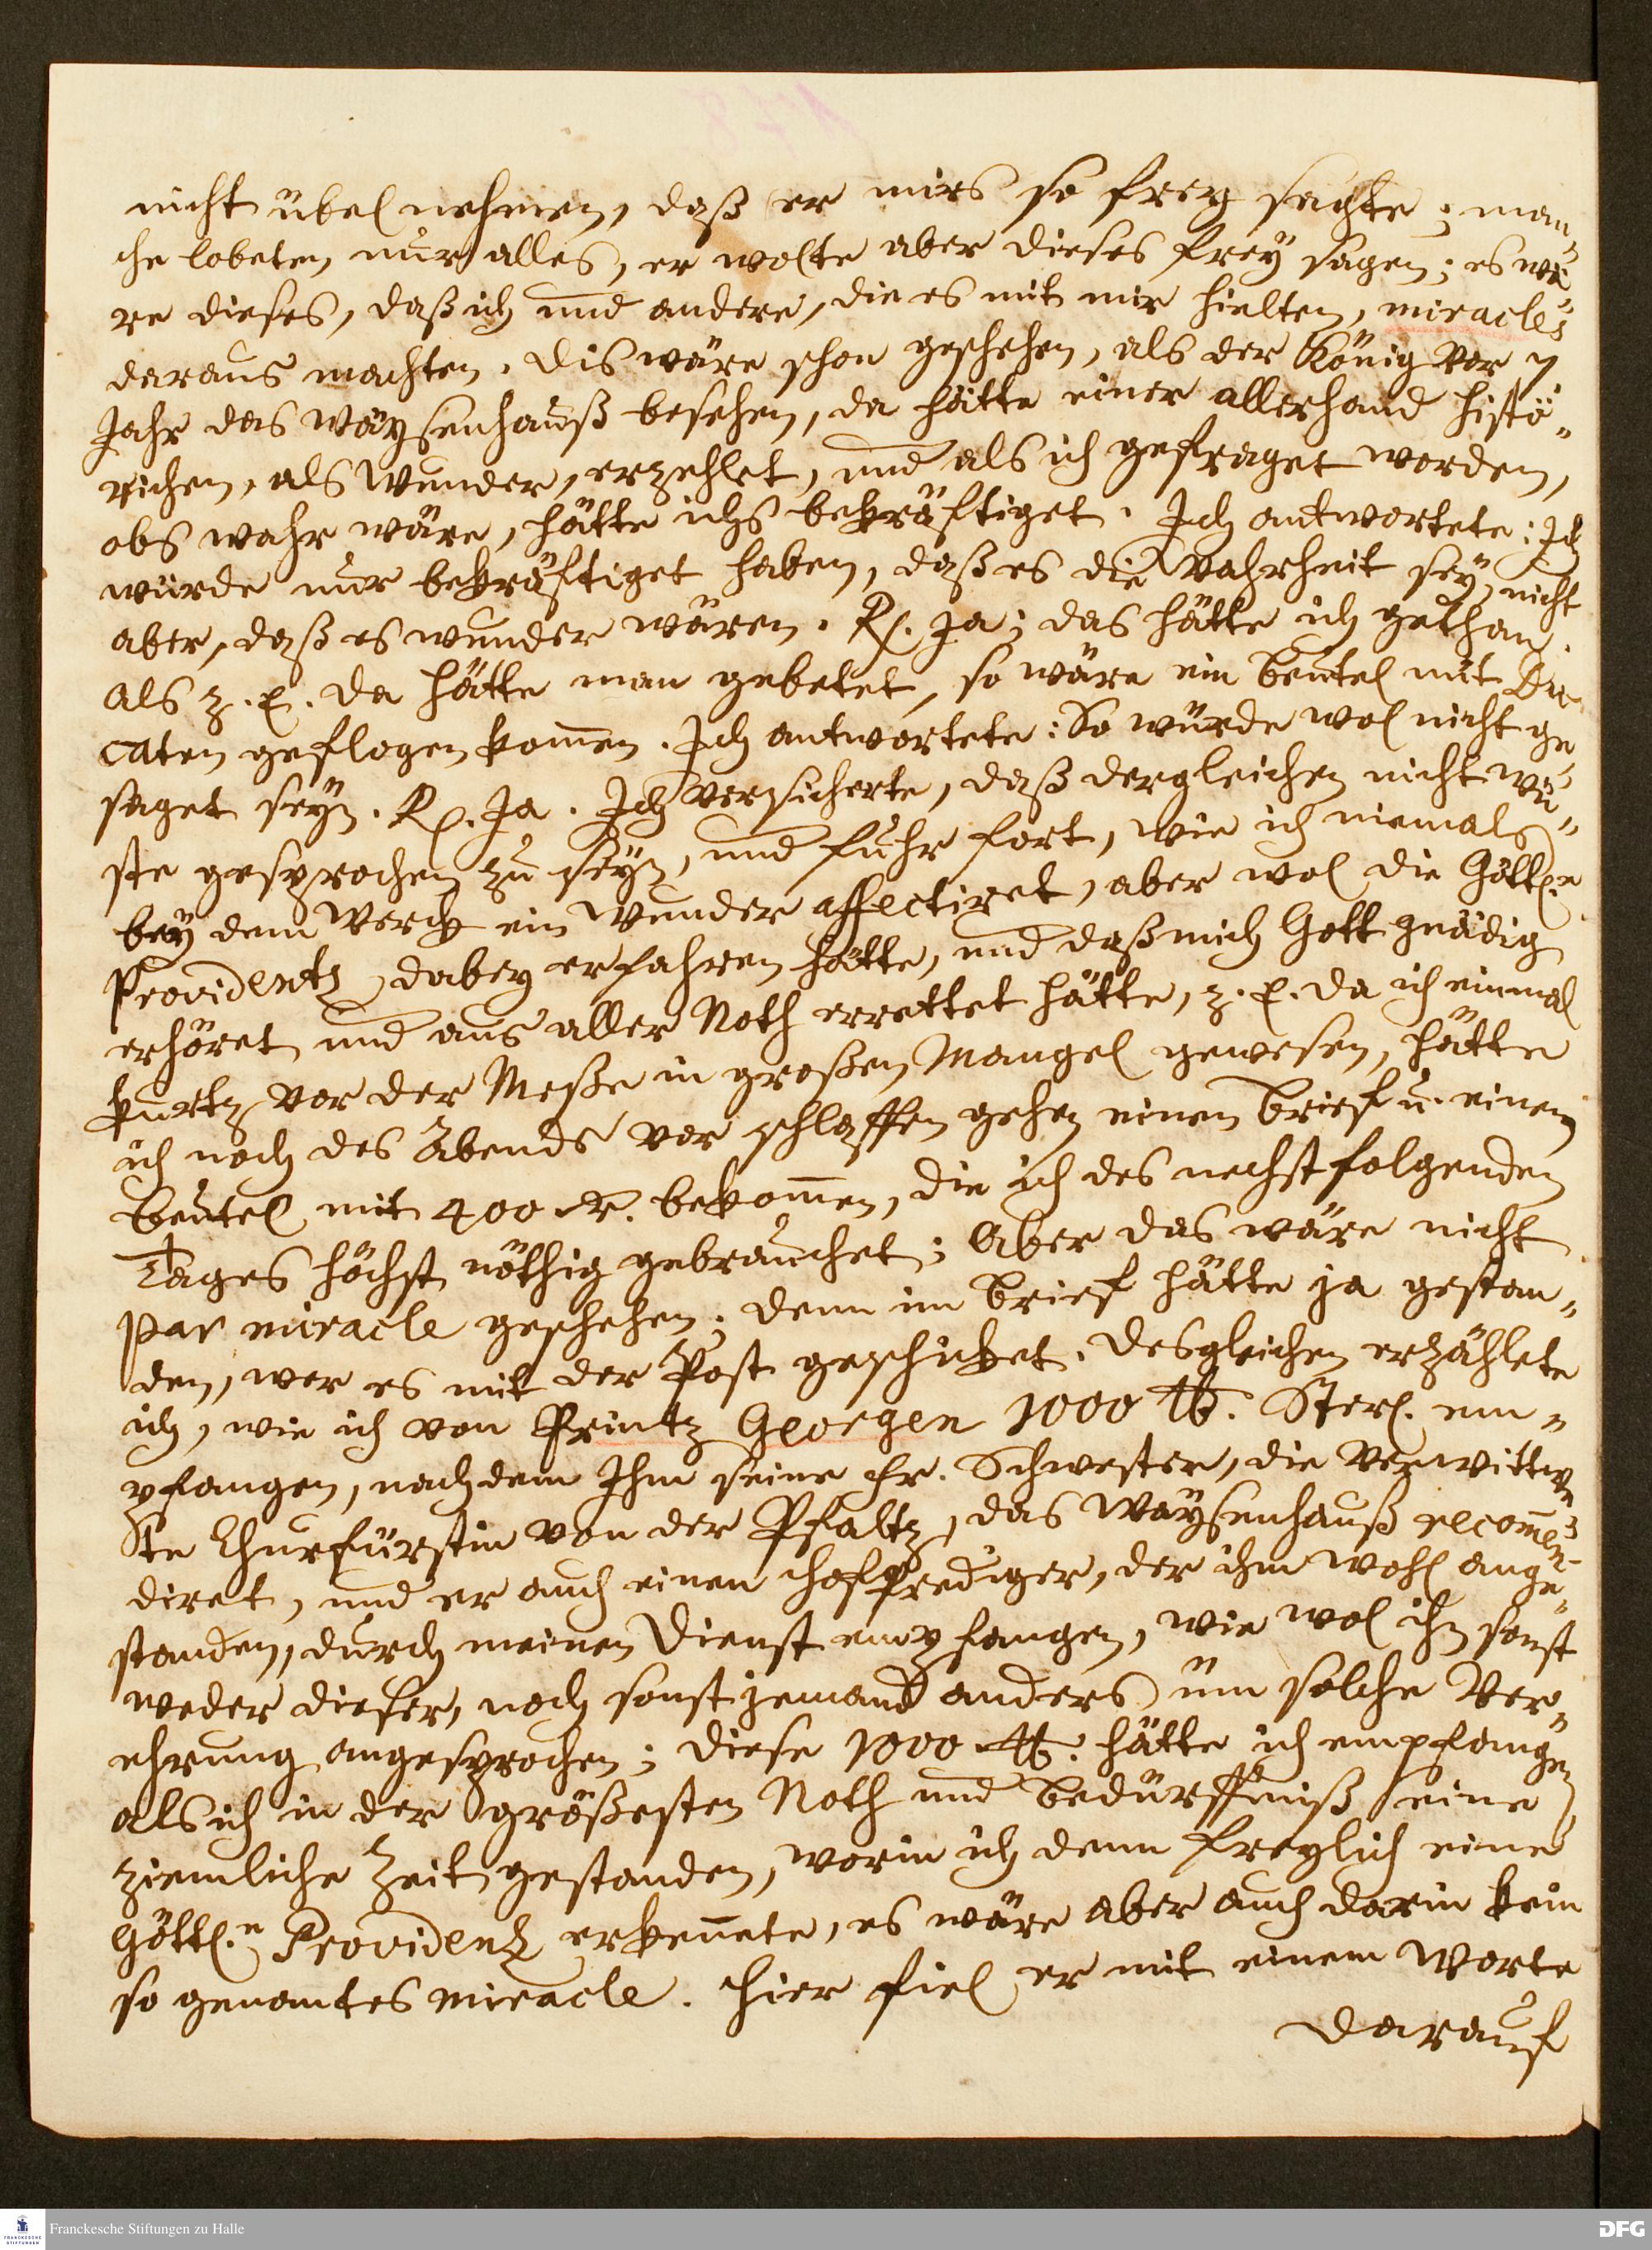 nicht übel nehmen, daß er mirs so frey sagte; man„
che lobeten nur alles, er wolte aber dieses frey sagen; es wä„
re dieses, daß ich und andere, die es mit mir hielten, miracles
daraus machten. Dis wäre schon geschehen, als der König vor 7
Jahr das Wäysenhauß besehen, da hätte einer allerhand histö„
richen, als Wunder, erzehlet, und als ich gefraget worden,
obs wahr wäre, hätte ichs bekräftiget. Ich antwortete: Ich
würde nur bekräftiget haben, daß es die Wahrheit sey, nicht
aber, daß es wunder wären. Rx. Ja; das hätte ich gethan.
Als z. E. da hätte man gebetet, so wäre ein beutel mit Du
caten geflogen kom̅en. Ich antwortete: So würde wol nicht ge
saget seyn. Rx. Ja. Ich versicherte, daß dergleichen nicht wü„
ste gesprochen zu seyn, und fuhr fort, wie ich niemals
bey dem Werck ein Wunder affectiret, aber wol die Göttl.e
Providentz dabey erfahren hätte, und daß mich Gott gnädig
erhöret und aus aller Noth errettet hätte, z. E. da ich einmal
kurtz vor der Meße in großen Mangel gewesen, hätte
ich noch des Abends vor schlaffen gehen einen brief u. einen
beutel mit 400 rt. bekom̅en, die ich des nechstfolgenden
Tages höchst nöthig gebrauchet; Aber das wäre nicht
par miracle geschehen; denn im brief hätte ja gestan„
den, wer es mit der Post geschicket. Desgleichen erzählete
ich, wie ich von Printz Georgen 1000 ℔. Sterl. em„
pfangen, nachdem Ihm seine Fr. Schwester, die verwittwe
te Churfürstin von der Pfaltz, das Waysenhauß recom̅en
diret, und er auch einen Hofprediger, der ihm wohl ange„
standen, durch meinen Dienst empfangen, wie wol ihn sonst
weder dieser, noch sonst jemand anders um solche Ver„
ehrung angesprochen; diese 1000 ℔. hätte ich empfangen
als ich in der größesten Noth und bedürffniß eine
ziemliche Zeit gestanden, worin ich denn freylich eine
Göttl.e Providenz erken̅ete, es wäre aber auch darin kein
so genantes miracle. Hier fiel er mit einem Worte
darauf
Franckesche Stiftungen zu Halle
DFG